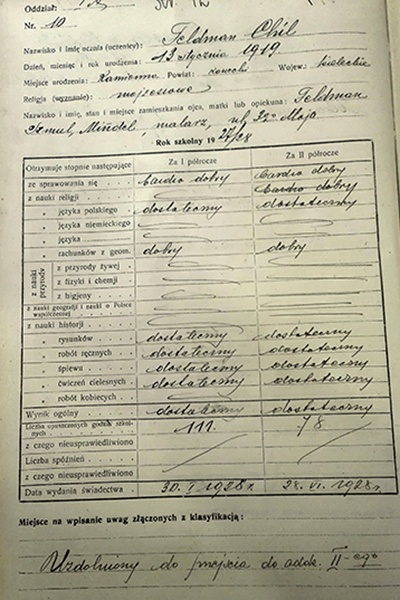 Oddział:
Nr. 10
Nazwisko i imię ucznia (uczenicy): Feldman Chil
Dzień, miesiąc i rok urodzenia: 13 stycznia 1919
Miejsce urodzenia: Kamienna Powiat: Wojew.: kieleckie
Religja (wyznanie): mojżeszowe
Nazwisko i imię, stan i miejsce zamieszkania ojca, matki lub opiekuna: Feldman
Szmul, Mindel, malarz, ul. 3go Maja
Rok szkolny 1927/28
Otrzymuje stopnie następujące Za I półrocze Za II półrocze
ze sprawowania się bardzo dobry bardzo dobry
z nauki religji bardzo dobry
„ języka polskiego dostateczny dostateczny
„ języka niemieckiego
„ języka
„ rachunków z geom. dobry dobry
z nauki przyrody
z przyrody żywej
z fizyki i chemji
z higjeny
z nauki geografji i nauki o Polsce współczesnej
z nauki historji
„ rysunków dostateczny dostateczny
„ robót ręcznych dostateczny dostateczny
„ śpiewu dostateczny dostateczny
„ ćwiczeń cielesnych dostateczny dostateczny
„ robót kobiecych
Wynik ogólny dostateczny dostateczny
Liczba opuszczonych godzin szkolnych 111 78
z czego nieusprawiedliwiono
Liczba spóźnień
z czego nieusprawiedliwiono
Data wydania świadectwa 30. I 1928 r. 28. VI. 1928 r.
Miejsce na wpisanie uwag złączonych z klasyfikacją:
Uzdolniony do przejścia do oddz. II-ego